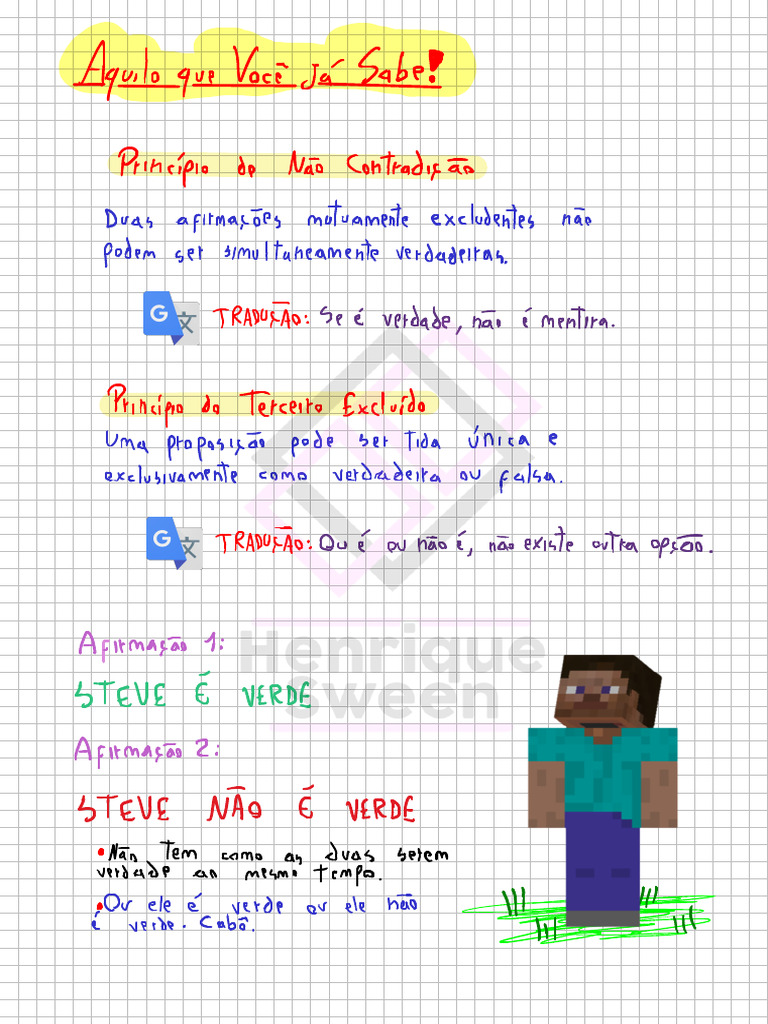 Aquilo que Você já Sabe!
Princípio do Não Contradição
Duas afirmações mutuamente excludentes não
podem ser simultaneamente verdadeiras.
G 文 TRADUÇÃO: Se é verdade, não é mentira.
Princípio do Terceiro Excluído
Uma proposição pode ser tida única e
exclusivamente como verdadeira ou falsa.
G 文 TRADUÇÃO: Ou é ou não é, não existe outra opção.
Afirmação 1:
Henrique
STEVE É VERDE
Sween
Afirmação 2:
STEVE NÃO É VERDE
•Não tem como as duas serem
verdade ao mesmo tempo.
•Ou ele é verde ou ele não
é verde. Cabô.